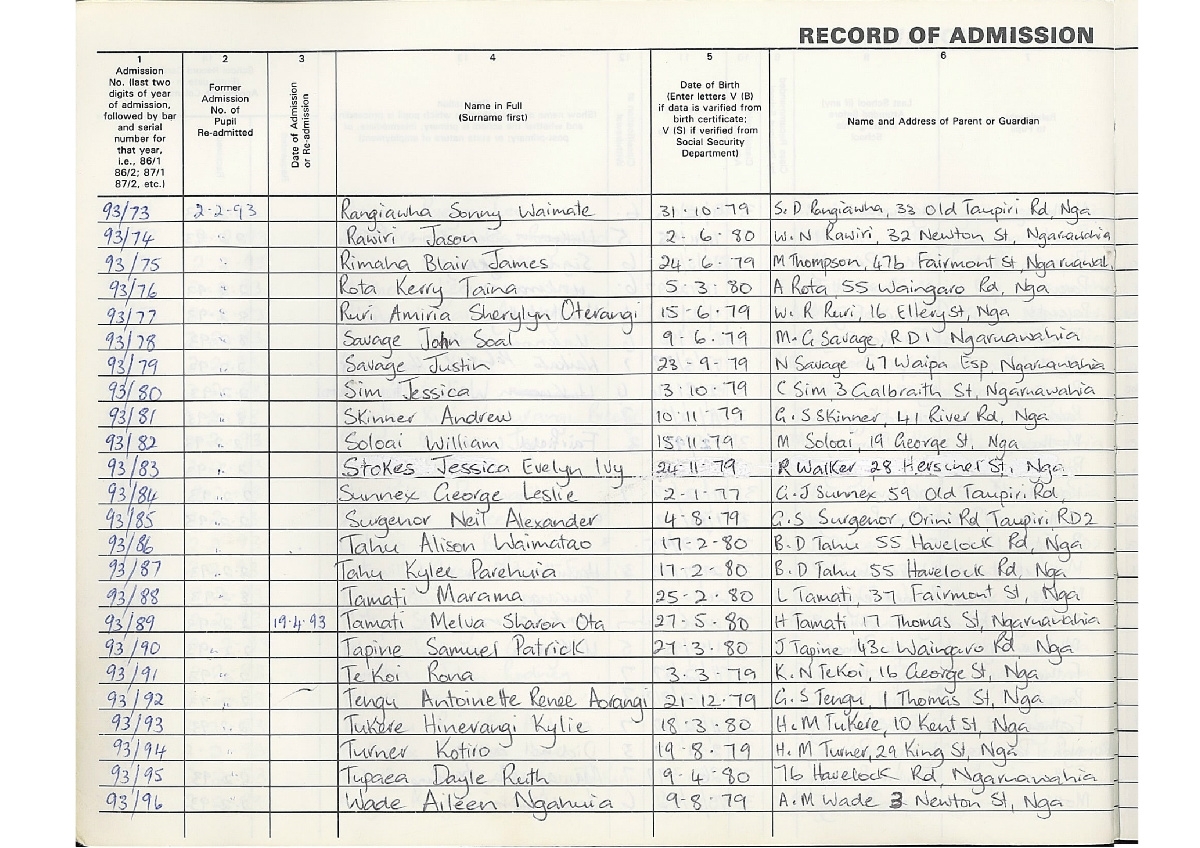 RECORD OF ADMISSION
1 2 3 4 5 6
Admission No. (last two digits of year of admission, followed by bar and serial number for that year, i.e., 86/1 86/2; 87/1 87/2, etc.)
Former Admission No. of Pupil Re-admitted
Date of Admission or Re-admission
Name in Full (Surname first)
Date of Birth (Enter letters V (B) if data is varified from birth certificate; V (S) if verified from Social Security Department)
Name and Address of Parent or Guardian
93/73 2-2-93 Rangiawha Sonny Waimate 31·10·79 S. D Rangiawha, 33 Old Taupiri Rd, Nga
93/74 " Rawiri Jason 2·6·80 W. N Rawiri, 32 Newton St, Ngaruawahia
93/75 " Rimaha Blair James 24·6·79 M Thompson, 47b Fairmont St,
93/76 " Rota Kerry Taina 5·3·80 A Rota 55 Waingaro Rd, Nga
93/77 " Ruri Amiria Sherylyn Oterangi 15-6-79 W. R Ruri, 16 Ellery St, Nga
93/78 " Savage John Soal 9-6-79 M. G Savage, RD1 Ngaruawahia
93/79 " Savage Justin 23-9-79 N Savage 47 Waipa Esp, Ngaruawahia
93/80 " Sim Jessica 3·10·79 C Sim 3 Galbraith St, Ngaruawahia
93/81 " Skinner Andrew 10·11·79 G. S Skinner, 41 River Rd, Nga
93/82 " Soloai William 15·11·79 M Soloai, 19 George St, Nga
93/83 " Stokes Jessica Evelyn Ivy 24·11·79 R Walker 28 Herschel St, Nga
93/84 " Sunnex George Leslie 2-1-77 G. J Sunnex 59 Old Taupiri Rd,
93/85 " Surgenor Neil Alexander 4-8-79 G. S Surgenor, Orini Rd Taupiri RD2
93/86 " Tahu Alison Waimatao 17-2-80 B. D Tahu 55 Havelock Rd, Nga
93/87 " Tahu Kylee Parehuia 17-2-80 B. D Tahu 55 Havelock Rd, Nga
93/88 " Tamati Marama 25-2-80 L Tamati, 37 Fairmont St, Nga
93/89 19·4·93 Tamati Melva Sharon Ota 27-5-80 H Tamati, 17 Thomas St, Ngaruawahia
93/90 " Tapine Samuel Patrick 27·3·80 J Tapine 43c Waingaro Rd, Nga
93/91 " Te Koi Rona 3·3·79 K. N TeKoi, 16 George St, Nga
93/92 " Tengu Antoinette Renee Aorangi 21-12-79 G. S Tengu, 1 Thomas St, Nga
93/93 " Tukere Hinerangi Kylie 18·3·80 H. M Tukere, 10 Kent St, Nga
93/94 " Turner Kotiro 19-8-79 H. M Turner, 29 King St, Nga
93/95 " Tupaea Dayle Ruth 9-4-80 76 Havelock Rd, Ngaruawahia
93/96 " Wade Aileen Ngahuia 9-8-79 A. M Wade 3 Newton St, Nga